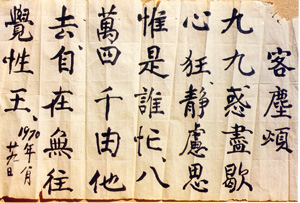 客塵頌
九九惑盡歇
心狂、靜慮思
惟是誰忙、八
萬四千由他
去、自在無往
覺性王、
1970年 月 日